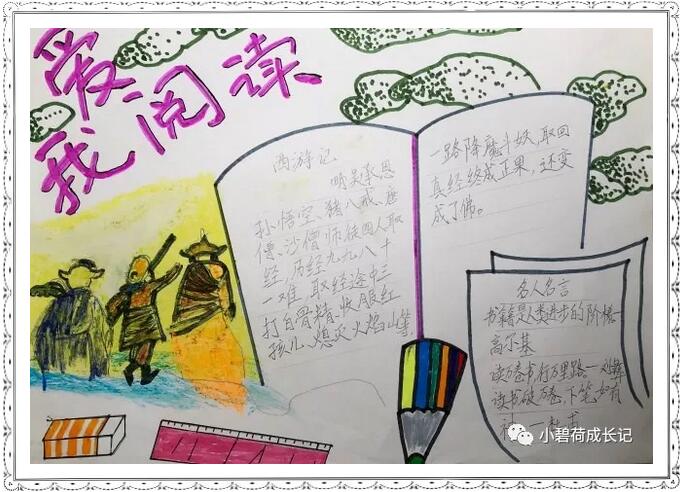 我爱阅读
西游记
明吴承恩
孙悟空、猪八戒、唐
僧、沙僧师徒四人取
经,历经九九八十
一难,取经途中三
打白骨精、收服红
孩儿、熄灭火焰山等,
一路降魔斗妖,取回
真经终成正果,还变
成了佛。
名人名言
书籍是人类进步的阶梯一
高尔基
读万卷书,行万里路一刘彝
读书破万卷,下笔如有
小碧荷成长记